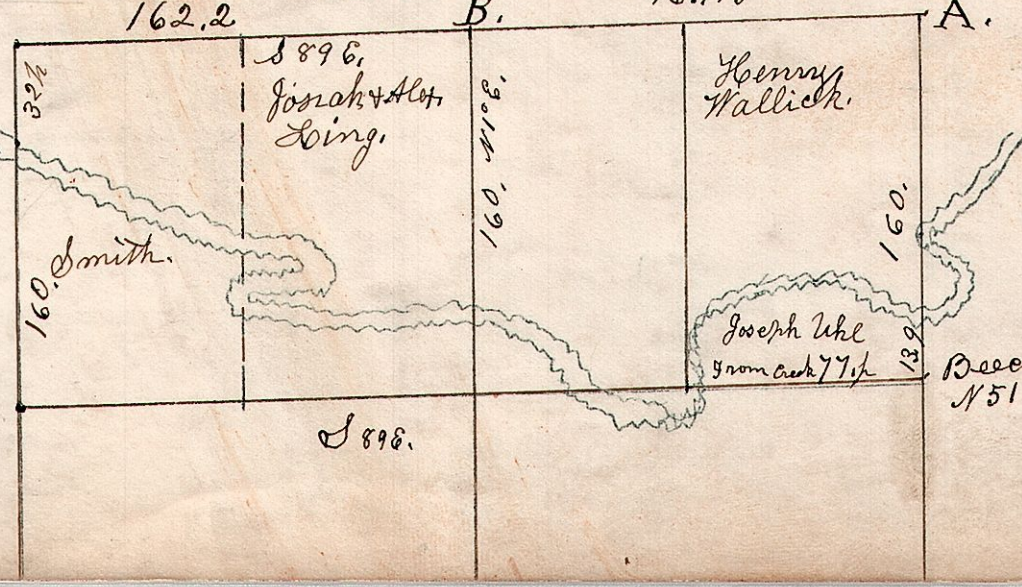 162.2
B.
A.
S 89 E.
Josiah & Alex.
King.
32½
160. N 1° E.
Henry
Wallick.
160.
Smith.
160.
Joseph Uhl
From Creek 77. p
139
Bee
N 51
S 89 E.